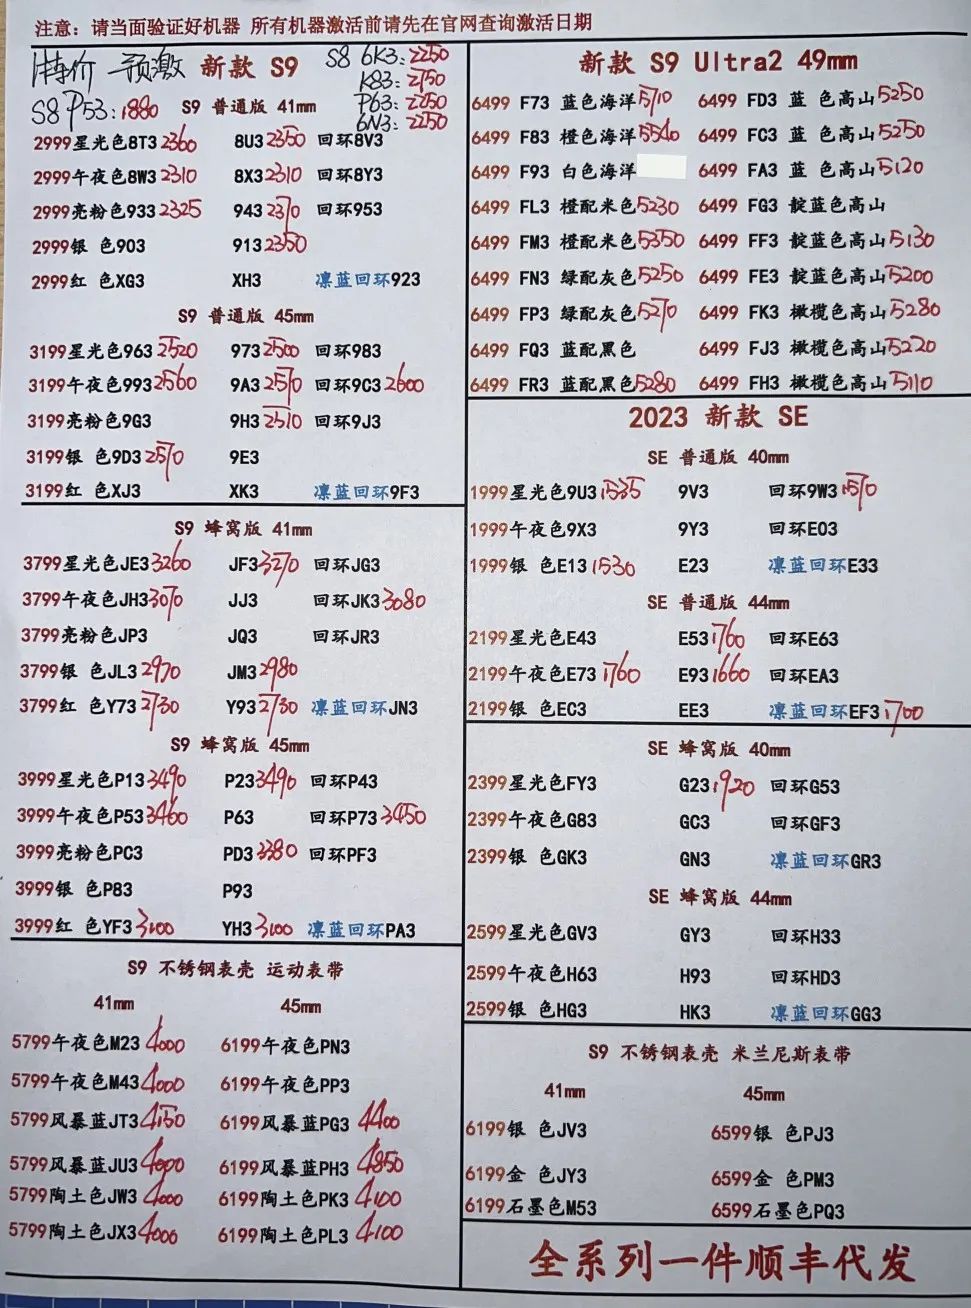 注意：请当面验证好机器 所有机器激活前请先在官网查询激活日期
特价 预激 新款 S9
S8 6K3：2250
K83：2150
S8 P53：1880
P63：2250
6N3：2250
S9 普通版 41mm
2999星光色8T3 2360 8U3 2350 回环8V3
2999午夜色8W3 2310 8X3 2310 回环8Y3
2999亮粉色933 2325 943 2370 回环953
2999银 色903 913 2350
2999红 色XG3 XH3 凛蓝回环923
S9 普通版 45mm
3199星光色963 2520 973 2500 回环983
3199午夜色993 2560 9A3 2570 回环9C3 2600
3199亮粉色9G3 9H3 2510 回环9J3
3199银 色9D3 2570 9E3
3199红 色XJ3 XK3 凛蓝回环9F3
S9 蜂窝版 41mm
3799星光色JE3 3260 JF3 3270 回环JG3
3799午夜色JH3 3070 JJ3 回环JK3 3080
3799亮粉色JP3 JQ3 回环JR3
3799银 色JL3 2970 JM3 2980
3799红 色Y73 2730 Y93 2730 凛蓝回环JN3
S9 蜂窝版 45mm
3999星光色P13 3490 P23 3490 回环P43
3999午夜色P53 3460 P63 回环P73 3450
3999亮粉色PC3 PD3 3380 回环PF3
3999银 色P83 P93
3999红 色YF3 3100 YH3 3100 凛蓝回环PA3
S9 不锈钢表壳 运动表带
41mm 45mm
5799午夜色M23 4000 6199午夜色PN3
5799午夜色M43 4000 6199午夜色PP3
5799风暴蓝JT3 4150 6199风暴蓝PG3 4400
5799风暴蓝JU3 4000 6199风暴蓝PH3 4850
5799陶土色JW3 4000 6199陶土色PK3 4100
5799陶土色JX3 4000 6199陶土色PL3 4100
新款 S9 Ultra2 49mm
6499 F73 蓝色海洋 5710 6499 FD3 蓝 色高山 5250
6499 F83 橙色海洋 5540 6499 FC3 蓝 色高山 5250
6499 F93 白色海洋 6499 FA3 蓝 色高山 5120
6499 FL3 橙配米色 5230 6499 FG3 靛蓝色高山
6499 FM3 橙配米色 5350 6499 FF3 靛蓝色高山 5130
6499 FN3 绿配灰色 5250 6499 FE3 靛蓝色高山 5200
6499 FP3 绿配灰色 5270 6499 FK3 橄榄色高山 5280
6499 FQ3 蓝配黑色 6499 FJ3 橄榄色高山 5220
6499 FR3 蓝配黑色 5280 6499 FH3 橄榄色高山 5110
2023 新款 SE
SE 普通版 40mm
1999星光色9U3 1535 9V3 回环9W3 1570
1999午夜色9X3 9Y3 回环E03
1999银 色E13 1530 E23 凛蓝回环E33
SE 普通版 44mm
2199星光色E43 E53 1760 回环E63
2199午夜色E73 1760 E93 1660 回环EA3
2199银 色EC3 EE3 凛蓝回环EF3 1700
SE 蜂窝版 40mm
2399星光色FY3 G23 1920 回环G53
2399午夜色G83 GC3 回环GF3
2399银 色GK3 GN3 凛蓝回环GR3
SE 蜂窝版 44mm
2599星光色GV3 GY3 回环H33
2599午夜色H63 H93 回环HD3
2599银 色HG3 HK3 凛蓝回环GG3
S9 不锈钢表壳 米兰尼斯表带
41mm 45mm
6199银 色JV3 6599银 色PJ3
6199金 色JY3 6599金 色PM3
6199石墨色M53 6599石墨色PQ3
全系列一件顺丰代发